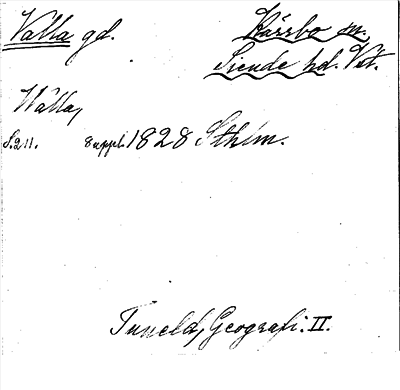 Valla gd.
Kärrbo sn.
Siende hd. Vst.
Wålla,
S. 211. 8 uppl. 1828 Sthlm.
Tuneld, Geografi. II.